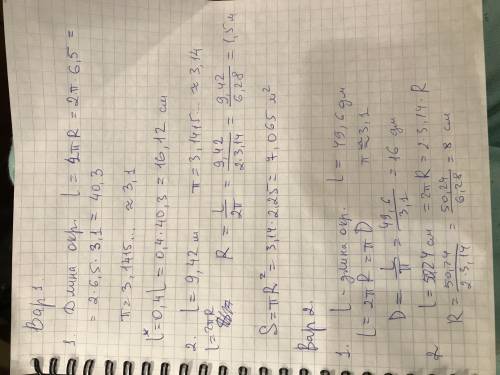 Вар 1
1. Длина окр. l = 2πR = 2π 6,5 =
= 2·6,5·3,1 = 40,3
π = 3,1415... ≈ 3,1
l* = 0,4 l = 0,4·40,3 = 16,12 см
2. l = 9,42 м π = 3,1415... ≈ 3,14
l = 2πR
R = l/2π = 9,42/2·3,14 = 9,42/6,28 = 1,5 м
S = πR² = 3,14·2,25 = 7,065 м²
Вар 2.
1. l - длина окр. l = 49,6 дм
l = 2πR = πD π ≈ 3,1
D = l/π = 49,6/3,1 = 16 дм
2 l = 50,24 см = 2πR = 2·3,14·R
R = 50,24/2·3,14 = 50,24/6,28 = 8 см